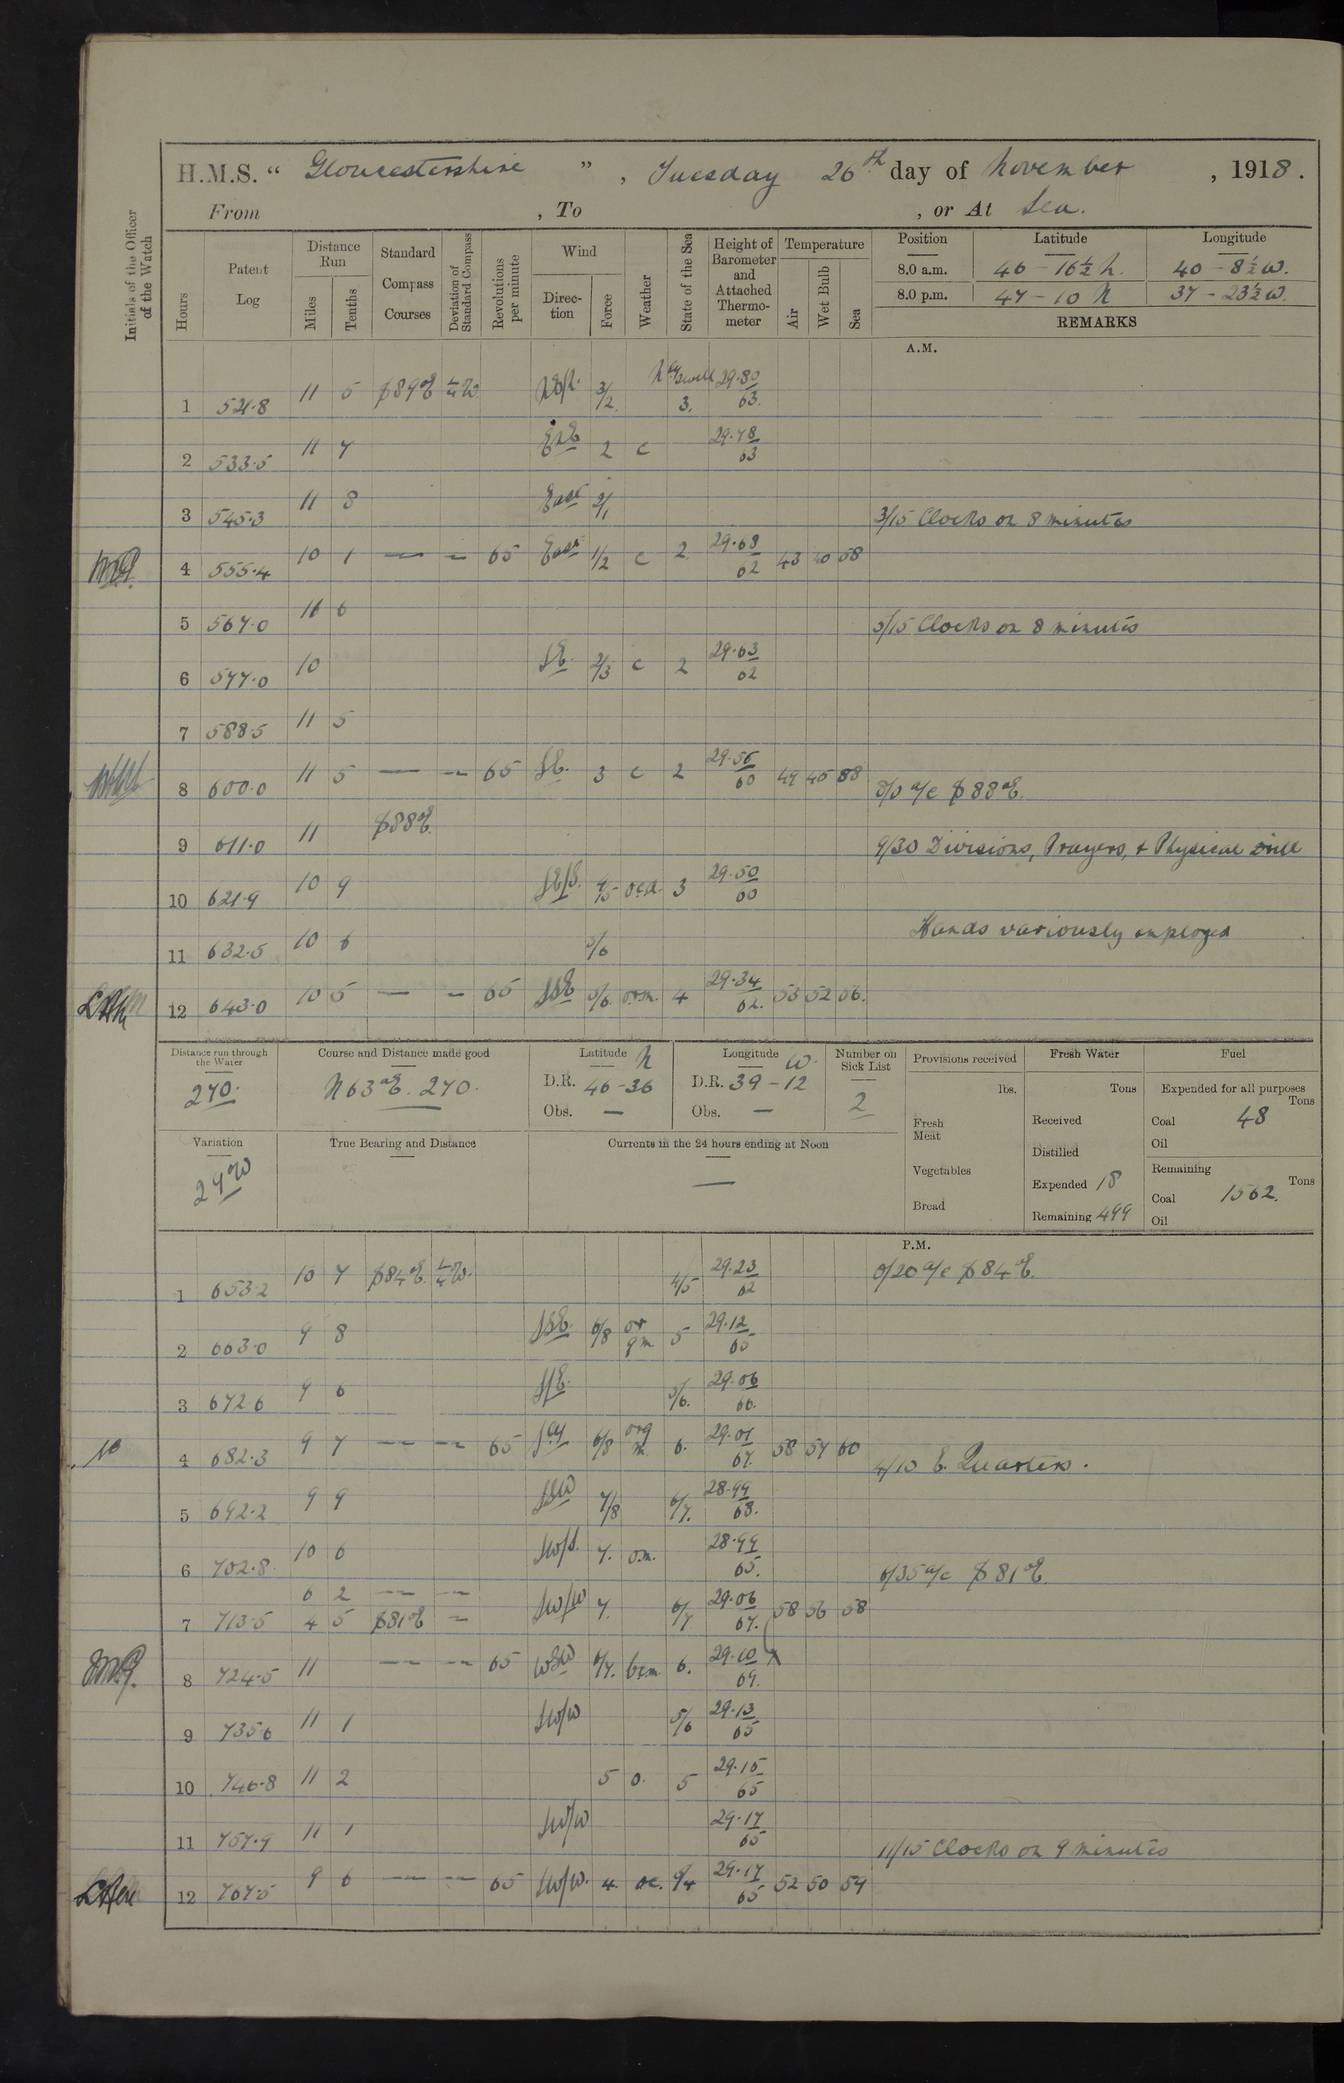 H.M.S. “ Gloucestershire ” , Tuesday 26th day of November , 1918 .
From , To , or At Sea.
Initials of the Officer of the Watch
Hours
Patent Log
Distance Run
Miles
Tenths
Standard Compass Courses
Deviation of Standard Compass
Revolutions per minute
Wind
Direction
Force
Weather
State of the Sea
Height of Barometer and Attached Thermometer
Temperature
Air
Wet Bulb
Sea
Position Latitude Longitude
8.0 a.m. 46 - 16½ N. 40 - 8½ W.
8.0 p.m. 47 - 10 N 37 - 23½ W.
REMARKS
A.M.
1 521.8 11 5 S89°E ¼W 3/2 Nly swell 3. 29.80 63.
2 533.5 11 7 ENE 2 c 29.78 63
3 545.3 11 8 East 2/1
3/15 Clocks on 8 minutes
4 555.4 10 1 — — 65 East 1/2 c 2 29.68 62 43 40 58
5 567.0 11 6
5/15 Clocks on 8 minutes
6 577.0 10 SE. 2/3 c 2 29.63 62
7 588.5 11 5
8 600.0 11 5 — — 65 SE. 3 c 2 29.56 60 49 45 58
8/0 a/c S88°E.
9 611.0 11 S88°E.
9/30 Divisions, Prayers, & Physical Drill
10 621.9 10 9 SE/S. 4/5 ocd. 3 29.50 60
Hands variously employed
11 632.5 10 6 5/6
12 643.0 10 5 — — 65 SSE 5/6 orm. 4 29.34 62. 53 52 56.
Distance run through the Water
270.
Course and Distance made good
N63°E. 270.
Latitude N
D.R. 46-36
Obs. —
Longitude W.
D.R. 39-12
Obs. —
Number on Sick List
2
Provisions received
lbs.
Fresh Meat
Vegetables
Bread
Fresh Water
Tons
Received
Distilled
Expended 18
Remaining 499
Fuel
Expended for all purposes
Tons
Coal 48
Oil
Remaining
Tons
Coal 1562.
Oil
Variation
27°W
True Bearing and Distance
Currents in the 24 hours ending at Noon
—
P.M.
1 653.2 10 7 S84°E. ¼W. 4/5 29.23 62
0/20 a/c S84°E.
2 663.0 9 8 SSE. 6/8 or qm 5 29.12 65
3 672.6 9 6 S/E. 5/6. 29.06 66.
4 682.3 9 7 — — 65 Sly 6/8 orq m. 6. 29.01 67. 58 57 60
4/15 E. Quarters.
5 692.2 9 9 SSW 7/8 6/7. 28.99 68.
6 702.8 10 6 SW/S. 7. om. 28.99 65.
6/35 a/c S81°E.
6 2 — —
7 713.5 4 5 S81°E — SW/W 7. 6/7 29.06 67. 58 56 58
8 724.5 11 — — 65 WSW 6/7. bcm. 6. 29.10 69.
9 735.6 11 1 SW/W 5/6 29.13 65
10 746.8 11 2 5 o. 5 29.15 65
11 757.9 11 1 SW/W 29.17 65
11/15 Clocks on 9 minutes
12 767.5 9 6 — — 65 SW/W. 4. oc. 5/4 29.17 65 52 50 54